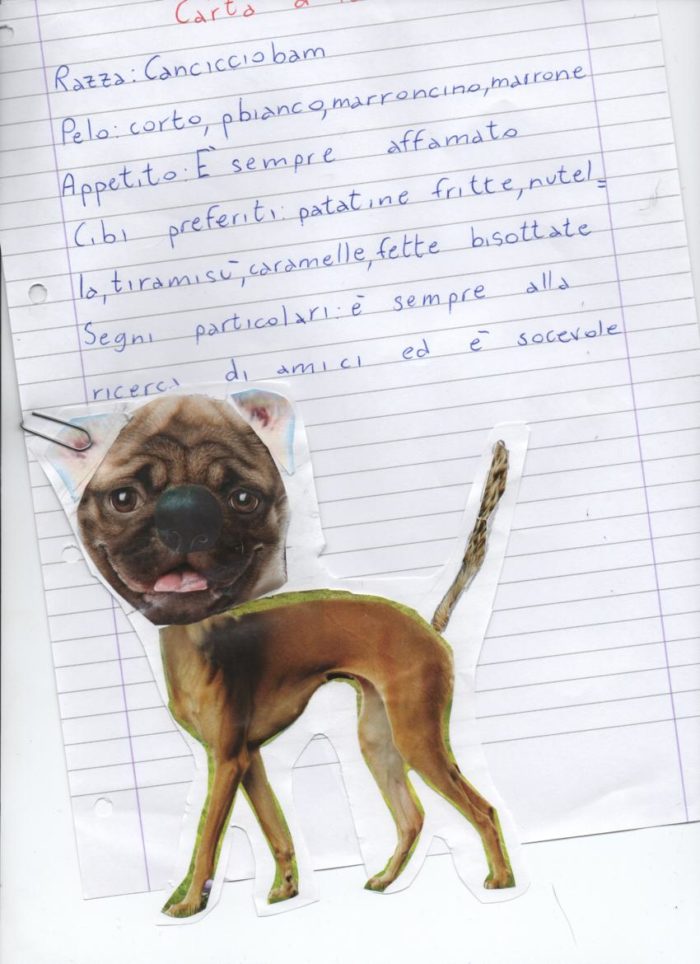 Carta
Razza: Cancicciobam
Pelo: corto, pbianco, marroncino, marrone
Appetito: È sempre affamato
Cibi preferiti: patatine fritte, nutel=
la, tiramisù, caramelle, fette bisottate
Segni particolari: è sempre alla
ricerca di amici ed è socevole